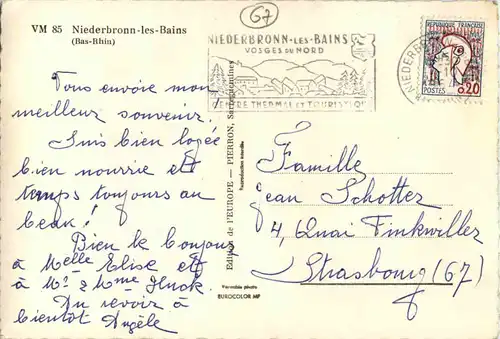 VM 85 Niederbronn-les-Bains
(Bas-Rhin)
67
NIEDERBRONN-LES-BAINS
VOSGES DU NORD
CENTRE THERMAL ET TOURISTIQUE
REPUBLIQUE FRANCAISE
POSTES 0,20
Vous envoie mon
meilleur souvenir.
Suis bien logée
bien nourrie et
temps toujours au
beau!
Bien le bonjour
à Melle Elise et
à Mr & Mme Huck.
Au revoir à
bientôt Angèle
Editions de l'EUROPE — PIERRON, Sarreguemines
Reproduction interdite
Véritable photo
EUROCOLOR MP
Famille
Jean Schotter
4, Quai Finkwiller
Strasbourg (67)